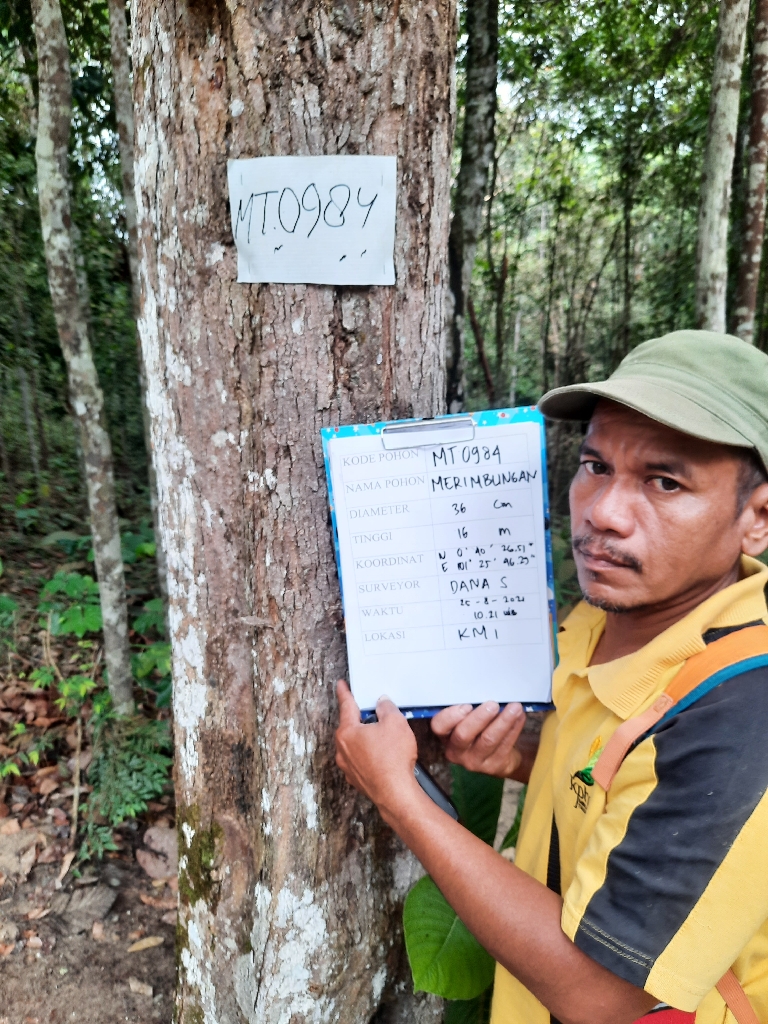 MT.0984
KODE POHON MT0984
NAMA POHON MERIMBUNGAN
DIAMETER 36 Cm
TINGGI 16 m
KOORDINAT N 0° 40' 26.51"
E 101° 25' 46.25"
SURVEYOR DANA S
WAKTU 25-8-2021
10.21 WIB
LOKASI KM1